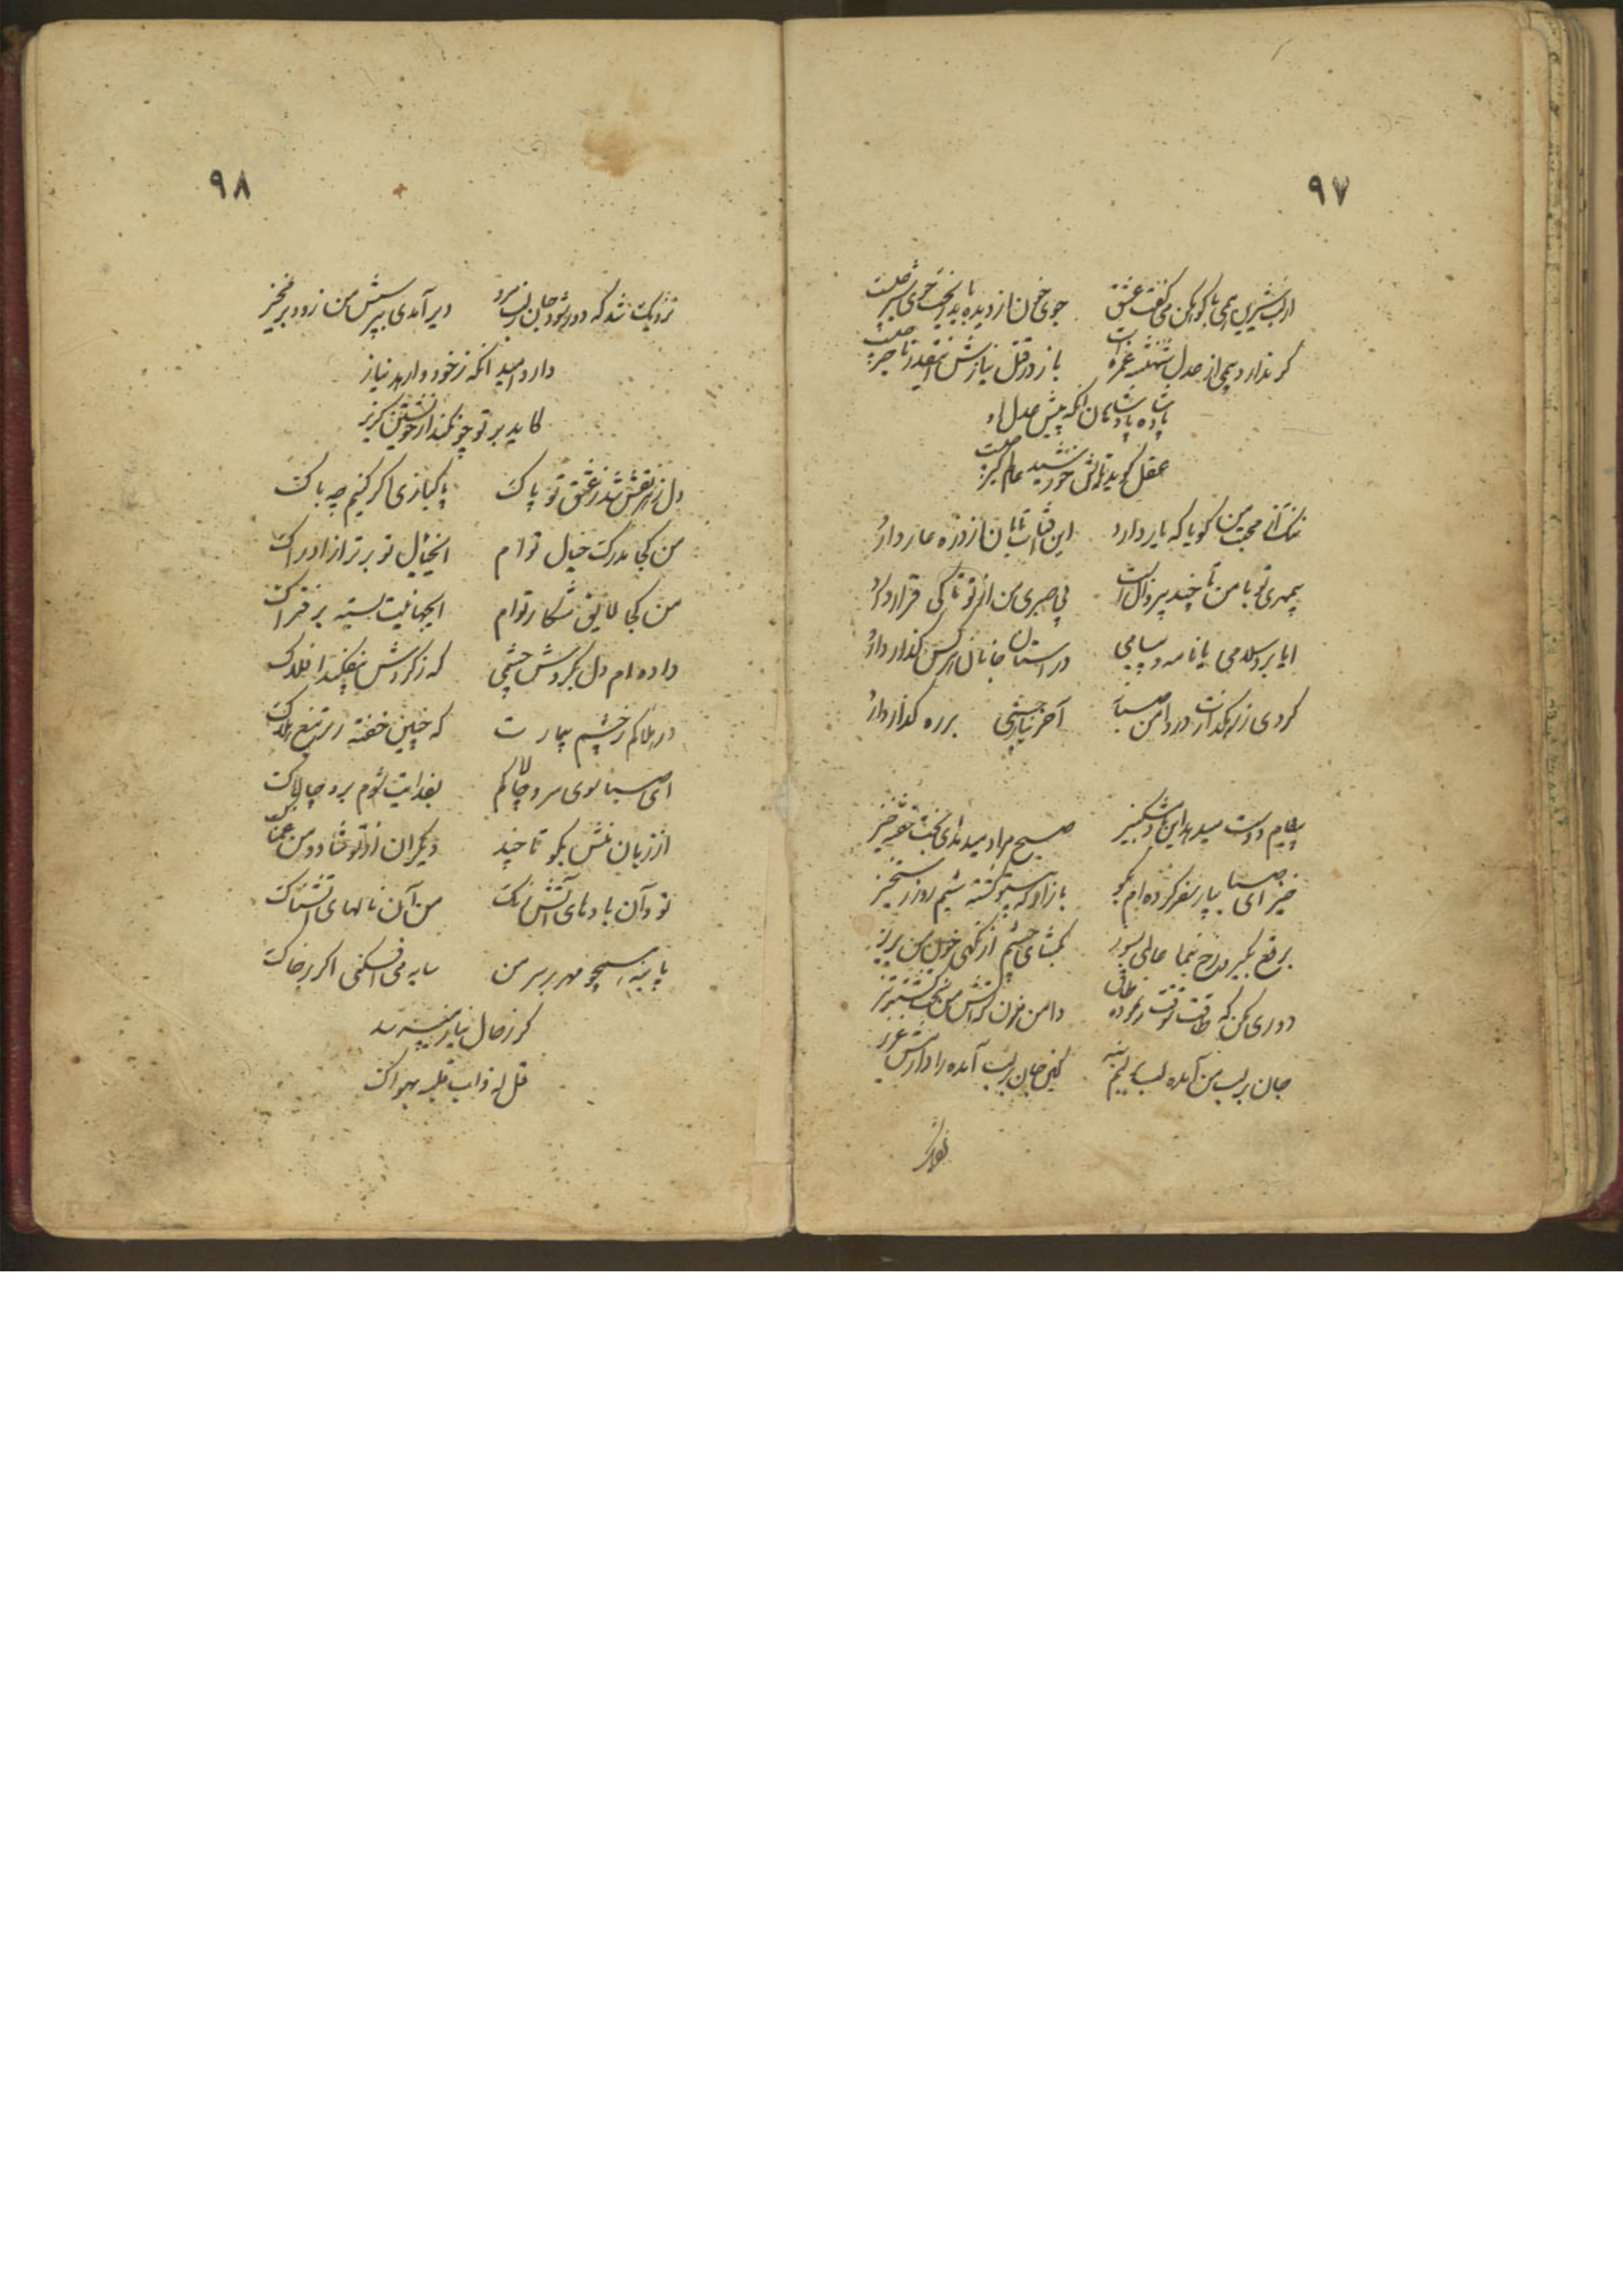 ۹۷
از لب شیرین همی با کوهکن می گفت عشق
جوی خون از دیده باید ریخت جوی شیر چیست
گر ندارد بیمی از عدل شهنشه غمزه ات
باز در قتل نیازش اینقدر تاخیر چیست
پادشاه پادشاهان آنکه پیش عدل او
عقل گوید تابش خورشید عالمگیر چیست
ننگ از محبت من گویا که یار دارد
این آفتاب تابان از ذره عار دارد
بیمهری تو با من تا چند پرده است
بی صبری من از تو تا کی قرار دارد
آیا برد سلامی یا نامه و پیامی
در آستان جانان کس گذار دارد
گردی ز رهگذارت در دامن صبا
آخر نیاز چشمی بر ره گذار دارد
پیغام دوست میدهد این باد مشکبیز
صبح مراد میدمد ای بخت خفته خیز
خیز ای صبا بیار سفر کرده ام بگو
باز آ که بیتو کشته شدیم روز رستخیز
برقع بگیر و رخ بنما عالمی بسوز
بگشای چشم و از نگهی خون من بریز
دوری مکن که طاقت فرقت نمانده
دامن مزن که آتش من گشت تیز
جان بر لب من آمده لب بر لبم بنه
کاین جان بر لب آمده را دارمش عزیز
نزدیک
۹۸
نزدیک شد که دور شود جان ز تن مرو
دیر آمدی بپرسش من زود برمخیز
دارد امید آنکه ز خود وارهد نیاز
کاید بر تو چو نکند از خویشتن گریز
دل ز هر نقش شد ز عشق تو پاک
پاکبازی اگر کنیم چه باک
من کجا مدرک خیال توام
ای خیال تو برتر از ادراک
من کجا لایق شکار توام
ای جهانیت بسته بر فتراک
داده ام دل بگردش چشمی
که ز گردش بیفکند افلاک
در هلاکم ز چشم بیمارت
که چنین خفته زیر تیغ هلاک
ای صبا سوی سرو چالاکم
بفدایت شوم برو چالاک
از زبان منش بگو تا چند
دیگران از تو شاد و من غمناک
تو و آن باده های آتش رنگ
من و آن ناله های آتشناک
پا بنه همچو مهر بر سر من
سایه می افکنی اگر بر خاک
گر ز حال نیاز میپرسد